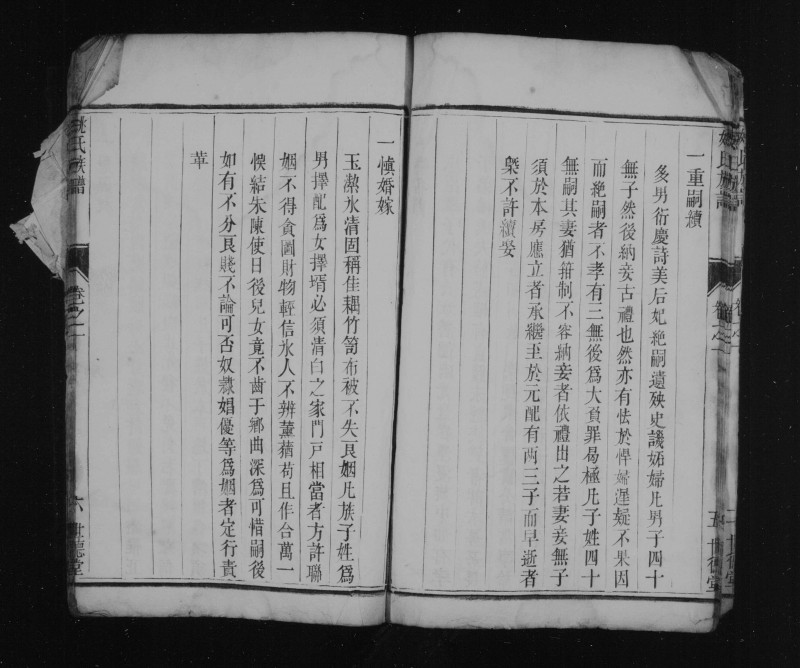 一重嗣續
多男衍慶詩美后妃絶嗣遺殃史譏妬婦凡男子四十
無子然後納妾古禮也然亦有怯於悍婦遲疑不果因
而絶嗣者不孝有三無後爲大負罪曷極凡子姓四十
無嗣其妻猶箝制不容納妾者依禮出之若妻妾無子
須於本房應立者承繼至於元配有兩三子而早逝者
槩不許續娶
五
一愼婚嫁
玉潔氷清固稱佳耦竹笥布被不失良姻凡族子姓爲
男擇配爲女擇壻必須清白之家門戸相當者方許聯
姻不得貪圖財物輕信氷人不辨薰蕕苟且作合萬一
悞結朱陳使日後兒女竟不齒于鄉曲深爲可惜嗣後
如有不分良賤不論可否奴隸娼優等爲姻者定行責
革
氏族譜
卷之二
六
世德堂